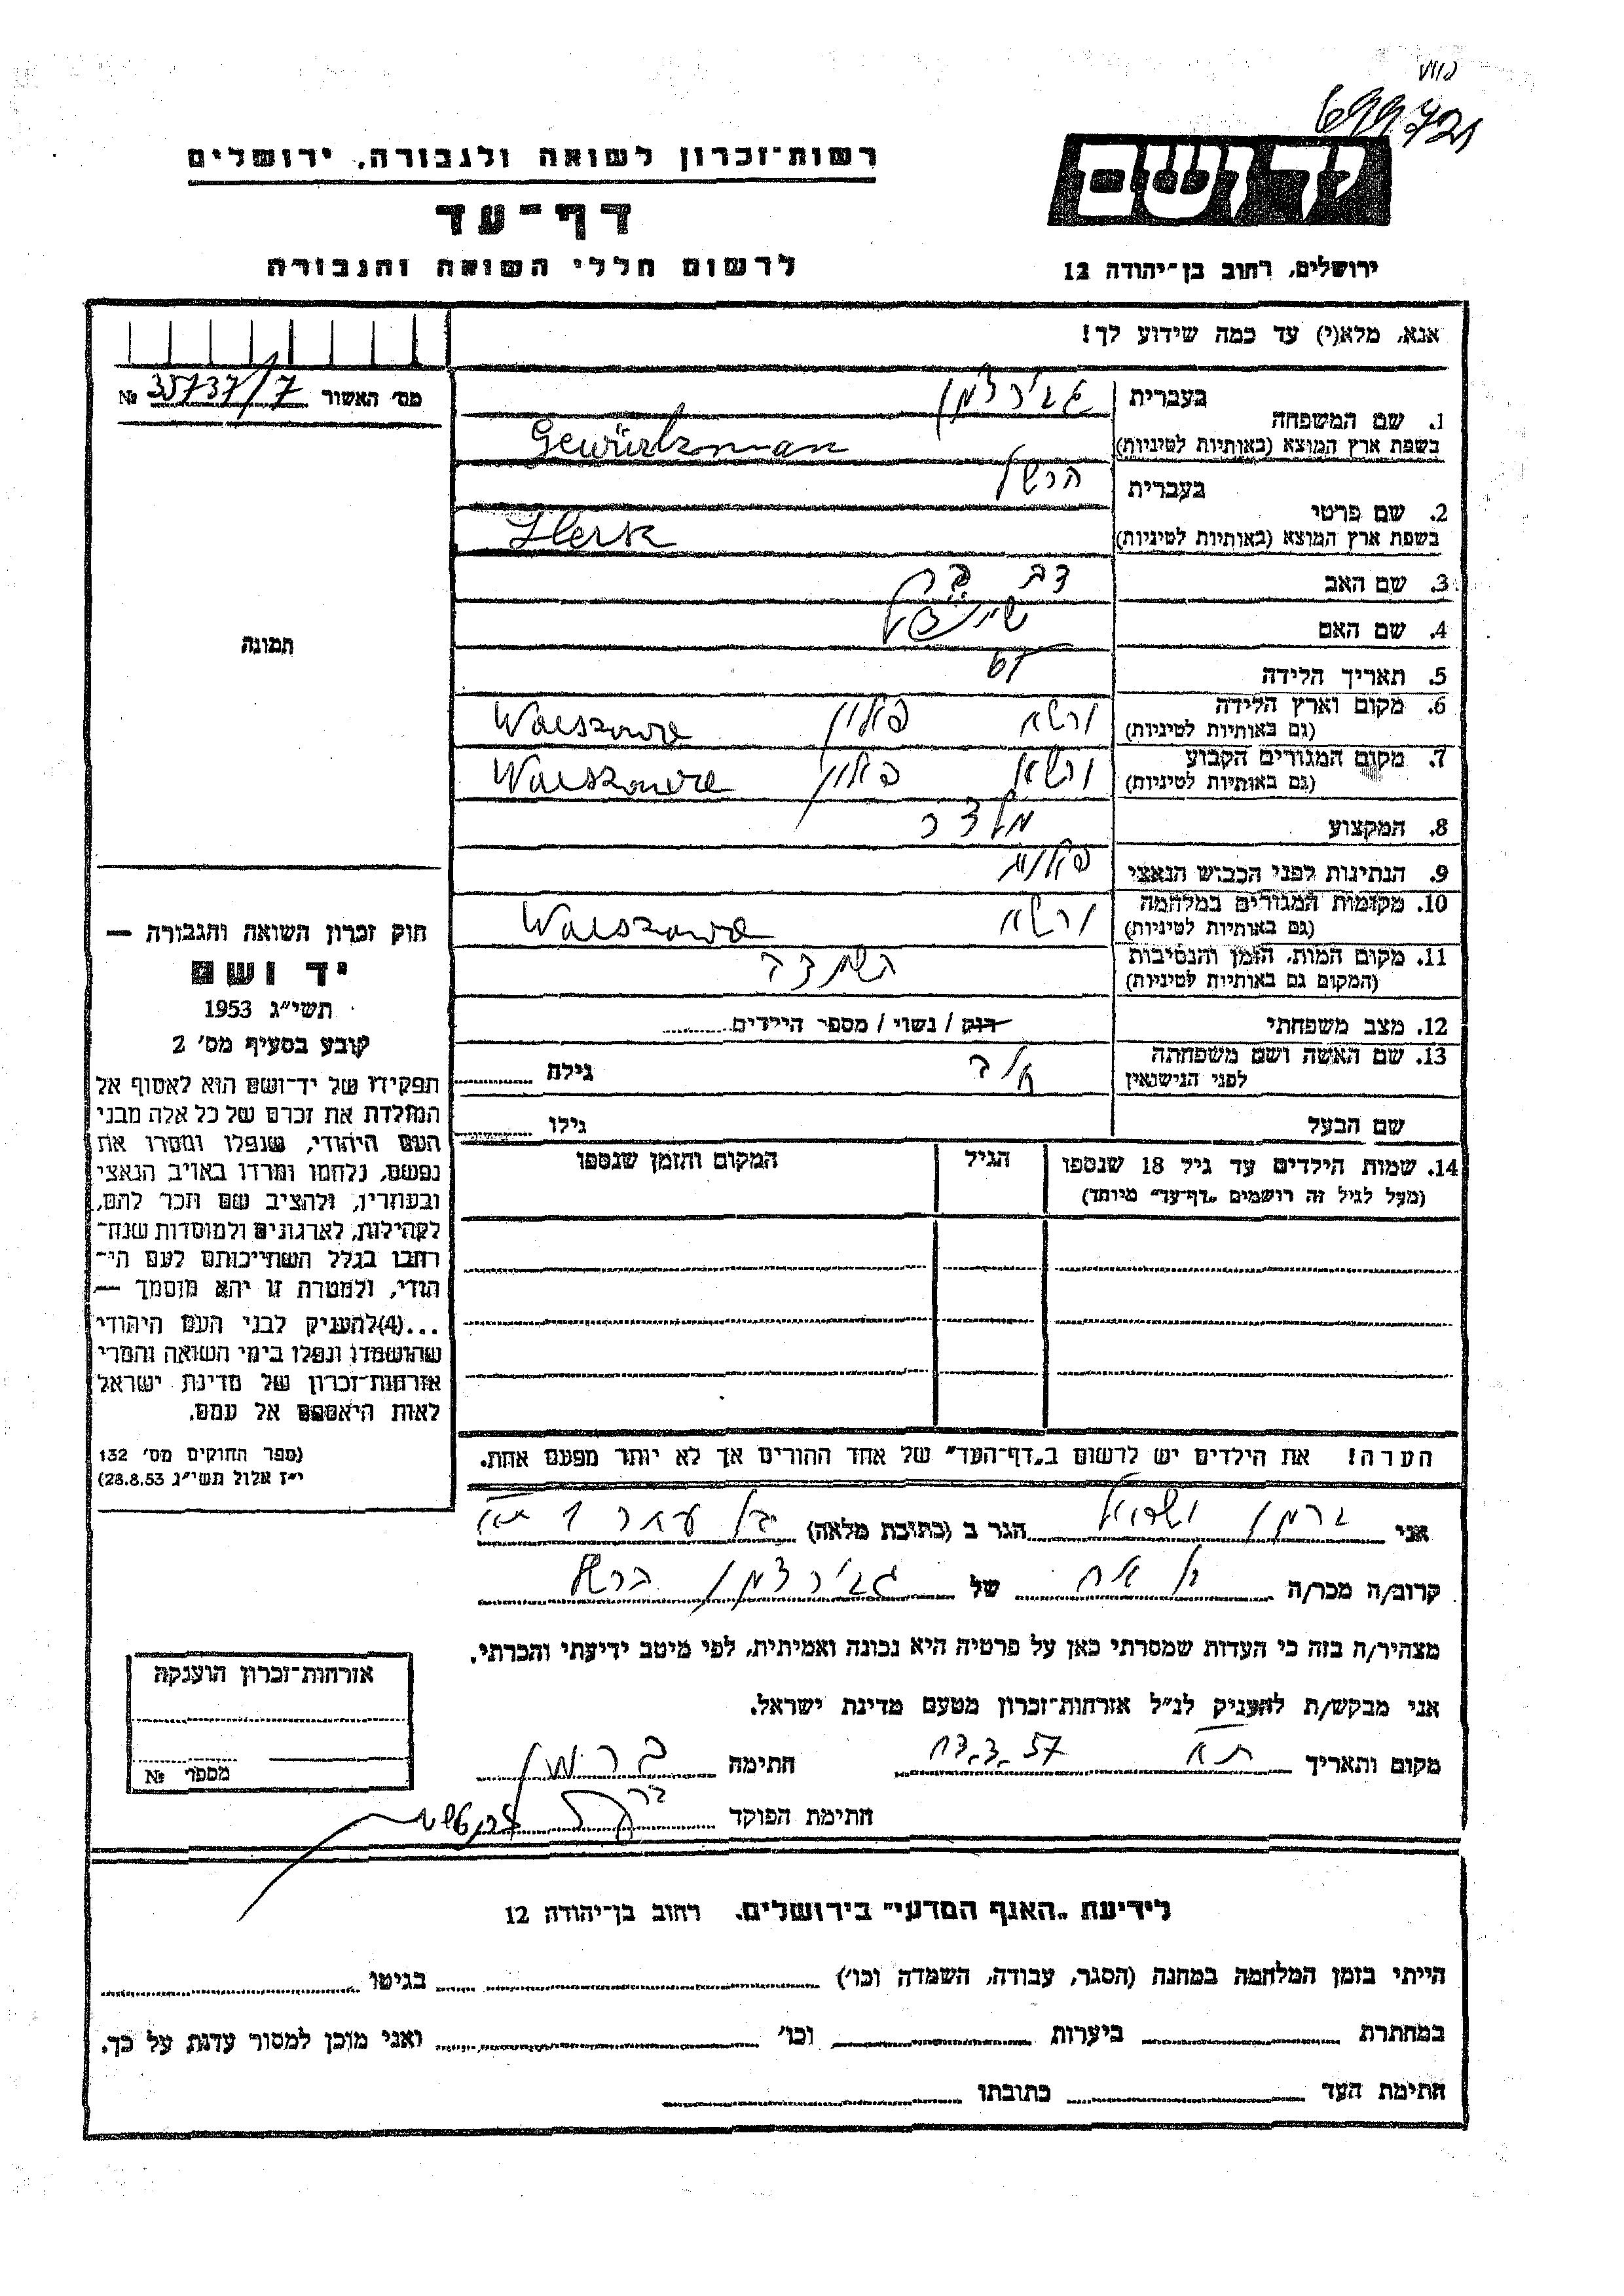 רשות־זכרון לשואה ולגבורה, ירושלים
דף־עד
לרשום חללי השואה והגבורה
69972
יד ושם
ירושלים, רחוב בן־יהודה 12
אנא, מלא(י) עד כמה שידוע לך!
מס׳ האשור № 35737/7
1. שם המשפחה
בעברית גבירצמן
בשפת ארץ המוצא (באותיות לטיניות) Gewürtzman
2. שם פרטי
בעברית הרשל
בשפת ארץ המוצא (באותיות לטיניות)
3. שם האב דב
4. שם האם
5. תאריך הלידה
6. מקום וארץ הלידה ורשא פולין Warszawa
(גם באותיות לטיניות)
7. מקום המגורים הקבוע ורשא פולין Warszawa
(גם באותיות לטיניות)
8. המקצוע מלצר
9. הנתינות לפני הכבוש הנאצי פולנית
10. מקומות המגורים במלחמה ורשא Warszawa
(גם באותיות לטיניות)
11. מקום המות, הזמן והנסיבות השמדה
(המקום גם באותיות לטיניות)
12. מצב משפחתי רווק / נשוי / מספר הילדים
13. שם האשה ושם משפחתה גילה
לפני הנישואין
שם הבעל גילו
14. שמות הילדים עד גיל 18 שנספו הגיל המקום והזמן שנספו
(מעל לגיל זה רושמים „דף־עד״ מיוחד)
הערה! את הילדים יש לרשום ב„דף־העד״ של אחד ההורים אך לא יותר מפעם אחת.
תמונה
חוק זכרון השואה והגבורה —
יד ושם
תשי״ג 1953
קובע בסעיף מס׳ 2
תפקידו של יד־ושם הוא לאסוף אל
המולדת את זכרם של כל אלה מבני
העם היהודי, שנפלו ומסרו את
נפשם, נלחמו ומרדו באויב הנאצי
ובעוזריו, ולהציב שם וזכר להם,
לקהילות, לארגונים ולמוסדות שנח־
רחבו בגלל השתייכותם לעם הי־
הודי, ולמטרת זו יהא מוסמך —
...(4)להעניק לבני העם היהודי
שהושמדו ונפלו בימי השואה והמרי
אזרחות־זכרון של מדינת ישראל
לאות היאספם אל עמם.
(ספר החוקים מס׳ 132
י״ז אלול תשי״ג 28.8.53)
אני הגר ב (כתובת מלאה)
קרוב/ה מכר/ה של גבירצמן
מצהיר/ה בזה כי העדות שמסרתי כאן על פרטיה היא נכונה ואמיתית, לפי מיטב ידיעתי והכרתי.
אני מבקש/ת להעניק לנ״ל אזרחות־זכרון מטעם מדינת ישראל.
מקום ותאריך ת״א 57 חתימה
חתימת הפוקד
אזרחות־זכרון הוענקה
מספר №
לידיעת „האגף המדעי״ בירושלים. רחוב בן־יהודה 12
הייתי בזמן המלחמה במחנה (הסגר, עבודה, השמדה וכו׳) בגיטו
במחתרת ביערות וכו׳ ואני מוכן למסור עדות על כך.
חתימת העד כתובתו